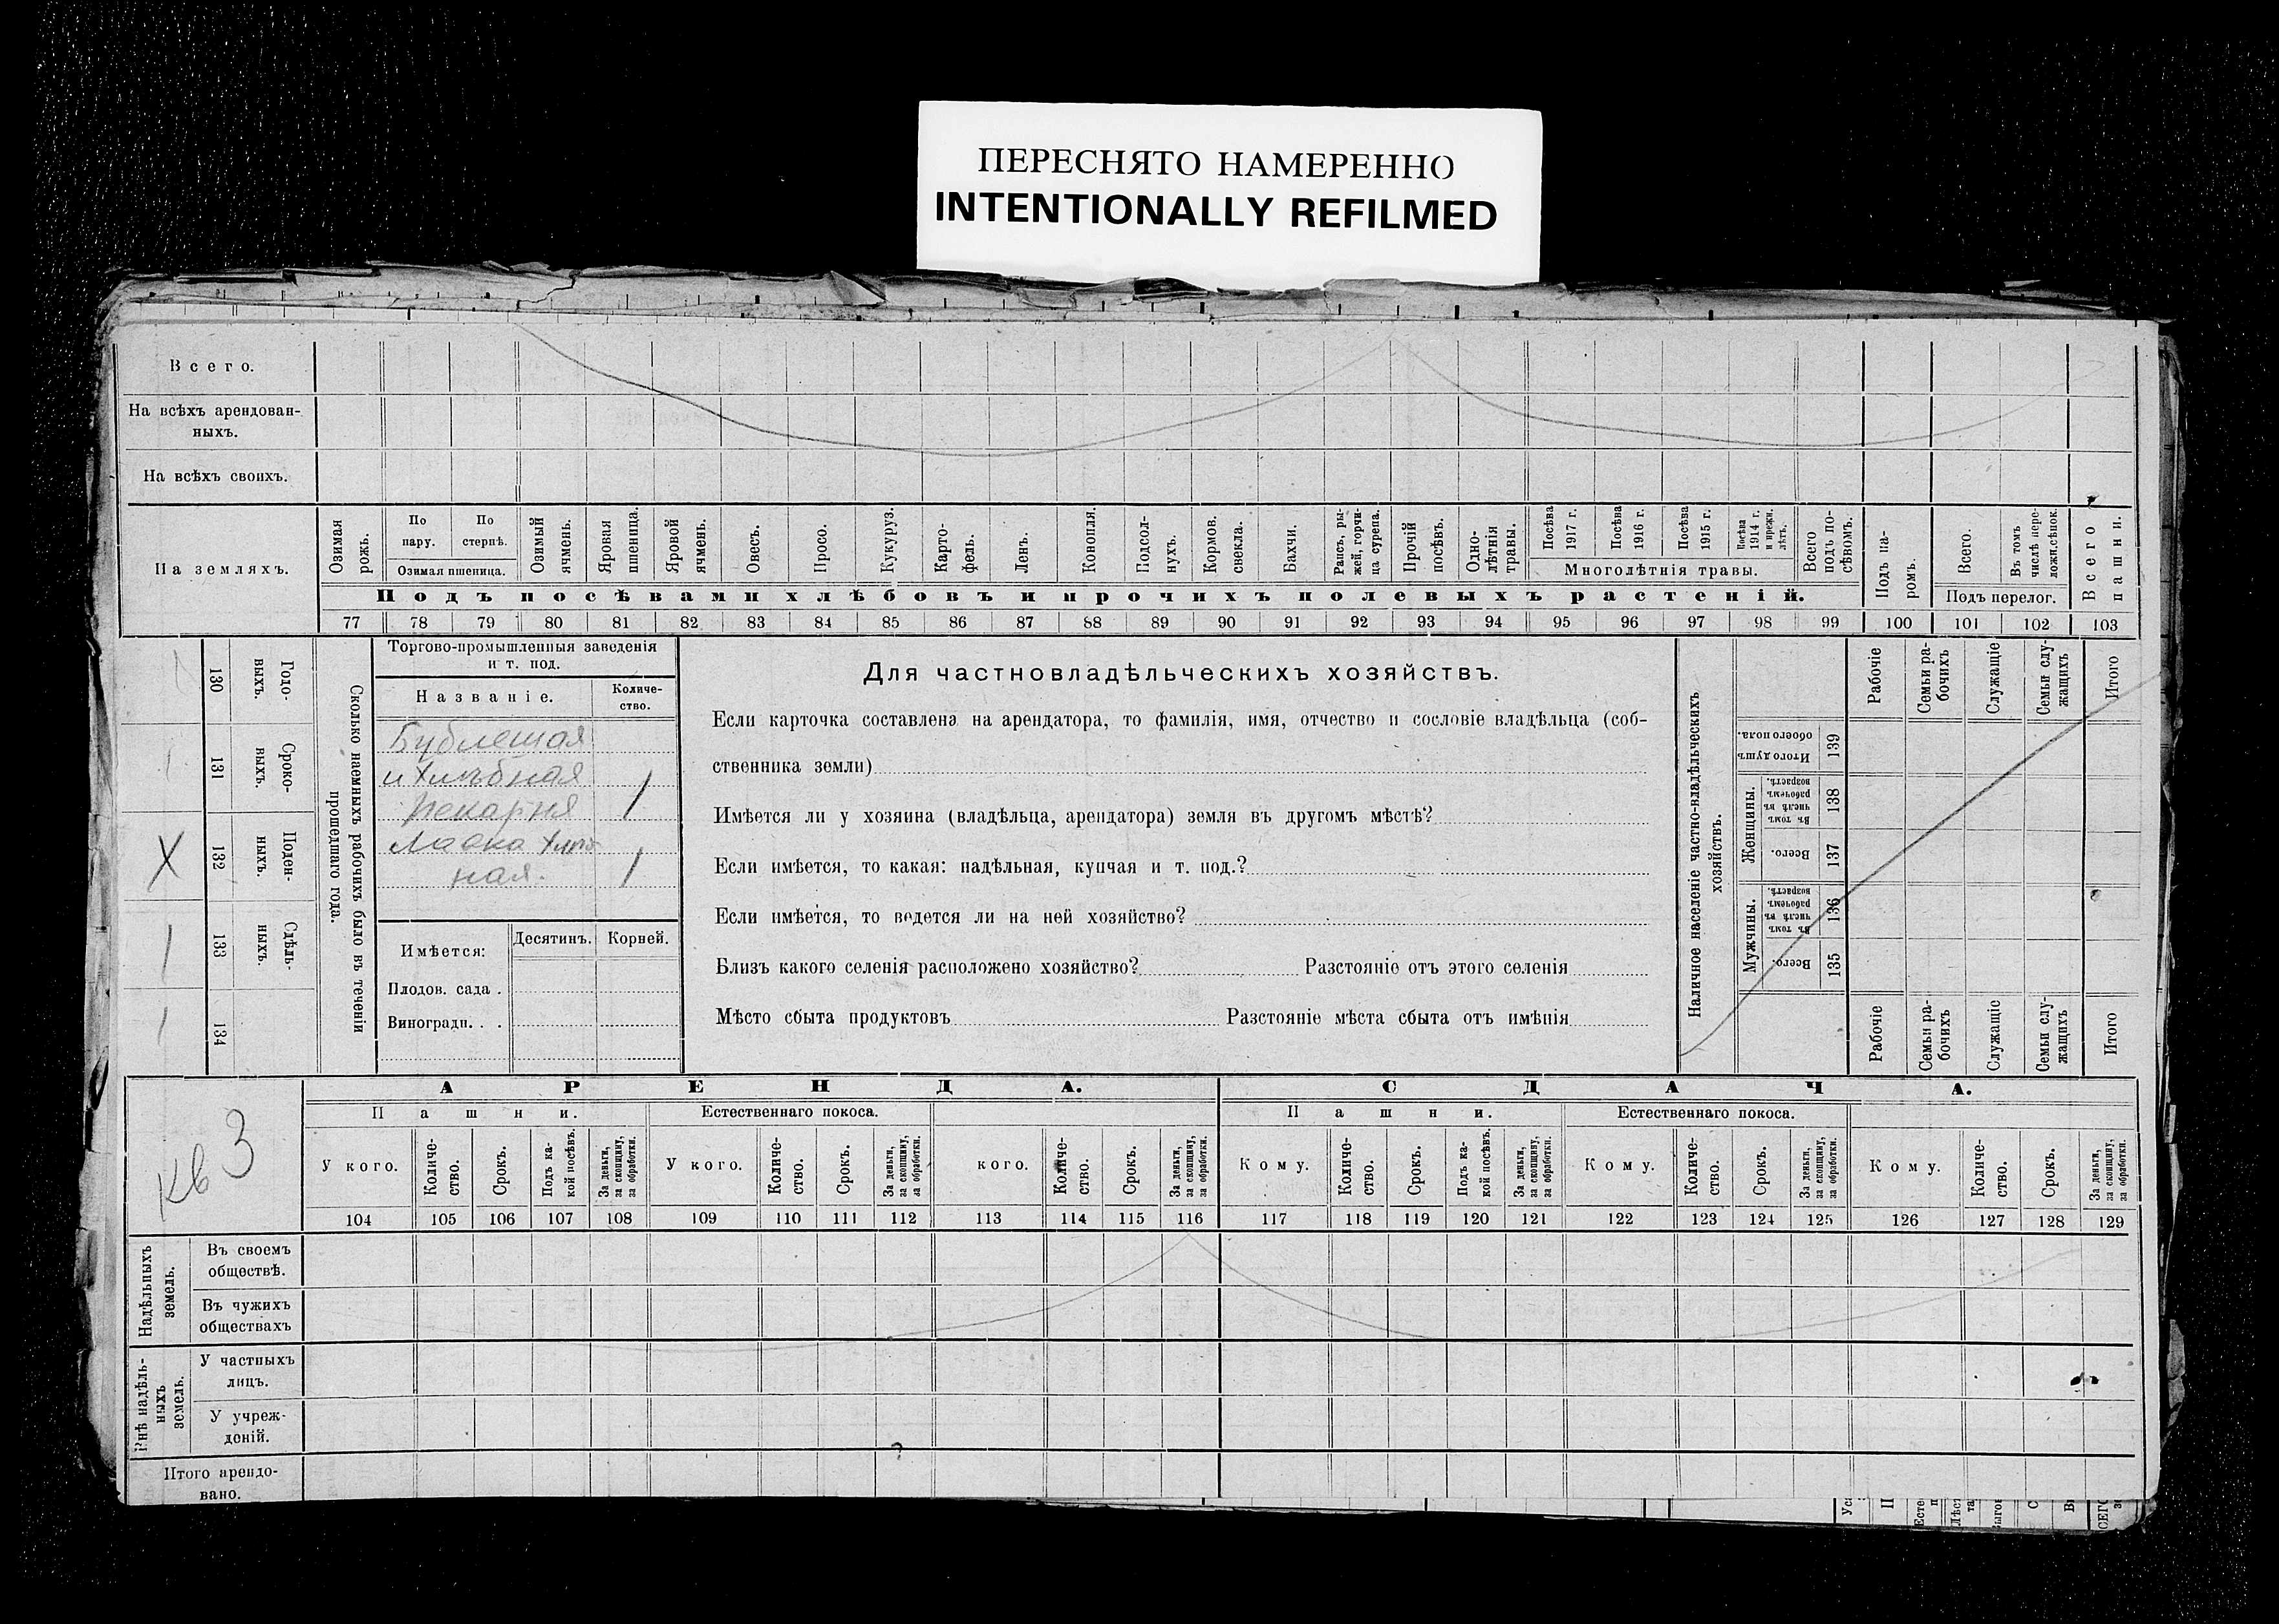 ПЕРЕСНЯТО НАМЕРЕННО
INTENTIONALLY REFILMED
Всего.
На всѣхъ арендован-
ныхъ.
На всѣхъ своихъ.
На земляхъ.
Озимая рожь.
По пару.
По стернѣ.
Озимая пшеница.
Озимый ячмень.
Яровая пшеница.
Яровой ячмень.
Овесъ.
Просо.
Кукуруз.
Карто-
фель.
Ленъ.
Конопля.
Подсол-
нухъ.
Кормов.
свекла.
Бахчи.
Рапсъ, ры-
жей, горчи-
ца сурепа.
Прочій посѣвъ.
Одно-
лѣтнія травы.
Посѣва 1917 г.
Посѣва 1916 г.
Посѣва 1915 г.
Посѣва 1914 г. и прежн. лѣтъ.
Многолѣтнія травы.
Всего подъ по-
сѣвомъ.
Подъ па-
ромъ.
Всего.
Въ томъ числѣ пере-
ложн. сѣнок.
Подъ перелог.
Всего пашни.
Подъ посѣвами хлѣбовъ и прочихъ полевыхъ растеній.
77 78 79 80 81 82 83 84 85 86 87 88 89 90 91 92 93 94 95 96 97 98 99 100 101 102 103
130 Годо-
выхъ.
131 Сроко-
ныхъ.
132 Поден-
ныхъ.
133 Сдѣль-
ныхъ.
134
1
X
1
1
Сколько наемныхъ рабочихъ было въ теченіи
прошедшаго года.
Торгово-промышленныя заведенія
и т. под.
Названіе.
Количе-
ство.
Бублешая
и Хлѣбная
Пекарня 1
Лавка Хлѣб
ная. 1
Имѣется:
Десятинъ.
Корней.
Плодов. сада .
Виноградн. . .
Для частновладѣльческихъ хозяйствъ.
Если карточка составлена на арендатора, то фамилія, имя, отчество и сословіе владѣльца (соб-
ственника земли)
Имѣется ли у хозяина (владѣльца, арендатора) земля въ другомъ мѣстѣ?
Если имѣется, то какая: надѣльная, купчая и т. под.?
Если имѣется, то ведется ли на ней хозяйство?
Близъ какого селенія расположено хозяйство? Разстояніе отъ этого селенія
Мѣсто сбыта продуктовъ Разстояніе мѣста сбыта отъ имѣнія
Наличное населеніе частно-владѣльческихъ
хозяйствъ.
Итого душъ обоего пола. 139
Женщины.
Въ томъ числѣ въ рабочемъ возрастѣ. 138
Всего. 137
Мужчины.
Въ томъ числѣ въ рабочемъ возрастѣ. 136
Всего. 135
Рабочіе
Семьи ра-
бочихъ
Служащіе
Семьи слу-
жащихъ
Итого
Рабочіе
Семьи ра-
бочихъ
Служащіе
Семьи слу-
жащихъ
Итого
кв 3
АРЕНДА.
СДАЧА.
Пашни.
Естественнаго покоса.
Пашни.
Естественнаго покоса.
У кого.
Количе-
ство.
Срокъ.
Подъ ка-
кой посѣвъ.
За деньги, за скопщину, за обработки.
У кого.
Количе-
ство.
Срокъ.
За деньги, за скопщину, за обработки.
кого.
Количе-
ство.
Срокъ.
За деньги, за скопщину, за обработки.
Кому.
Количе-
ство.
Срокъ.
Подъ ка-
кой посѣвъ.
За деньги, за скопщину, за обработки.
Кому.
Количе-
ство.
Срокъ.
За деньги, за скопщину, за обработки.
Кому.
Количе-
ство.
Срокъ.
За деньги, за скопщину, за обработки.
104 105 106 107 108 109 110 111 112 113 114 115 116 117 118 119 120 121 122 123 124 125 126 127 128 129
Надѣльныхъ земель.
Въ своемъ
обществѣ.
Въ чужихъ
обществахъ
Внѣ надѣль-
ныхъ земель.
У частныхъ
лицъ.
У учреж-
деній.
Итого арендо-
вано.